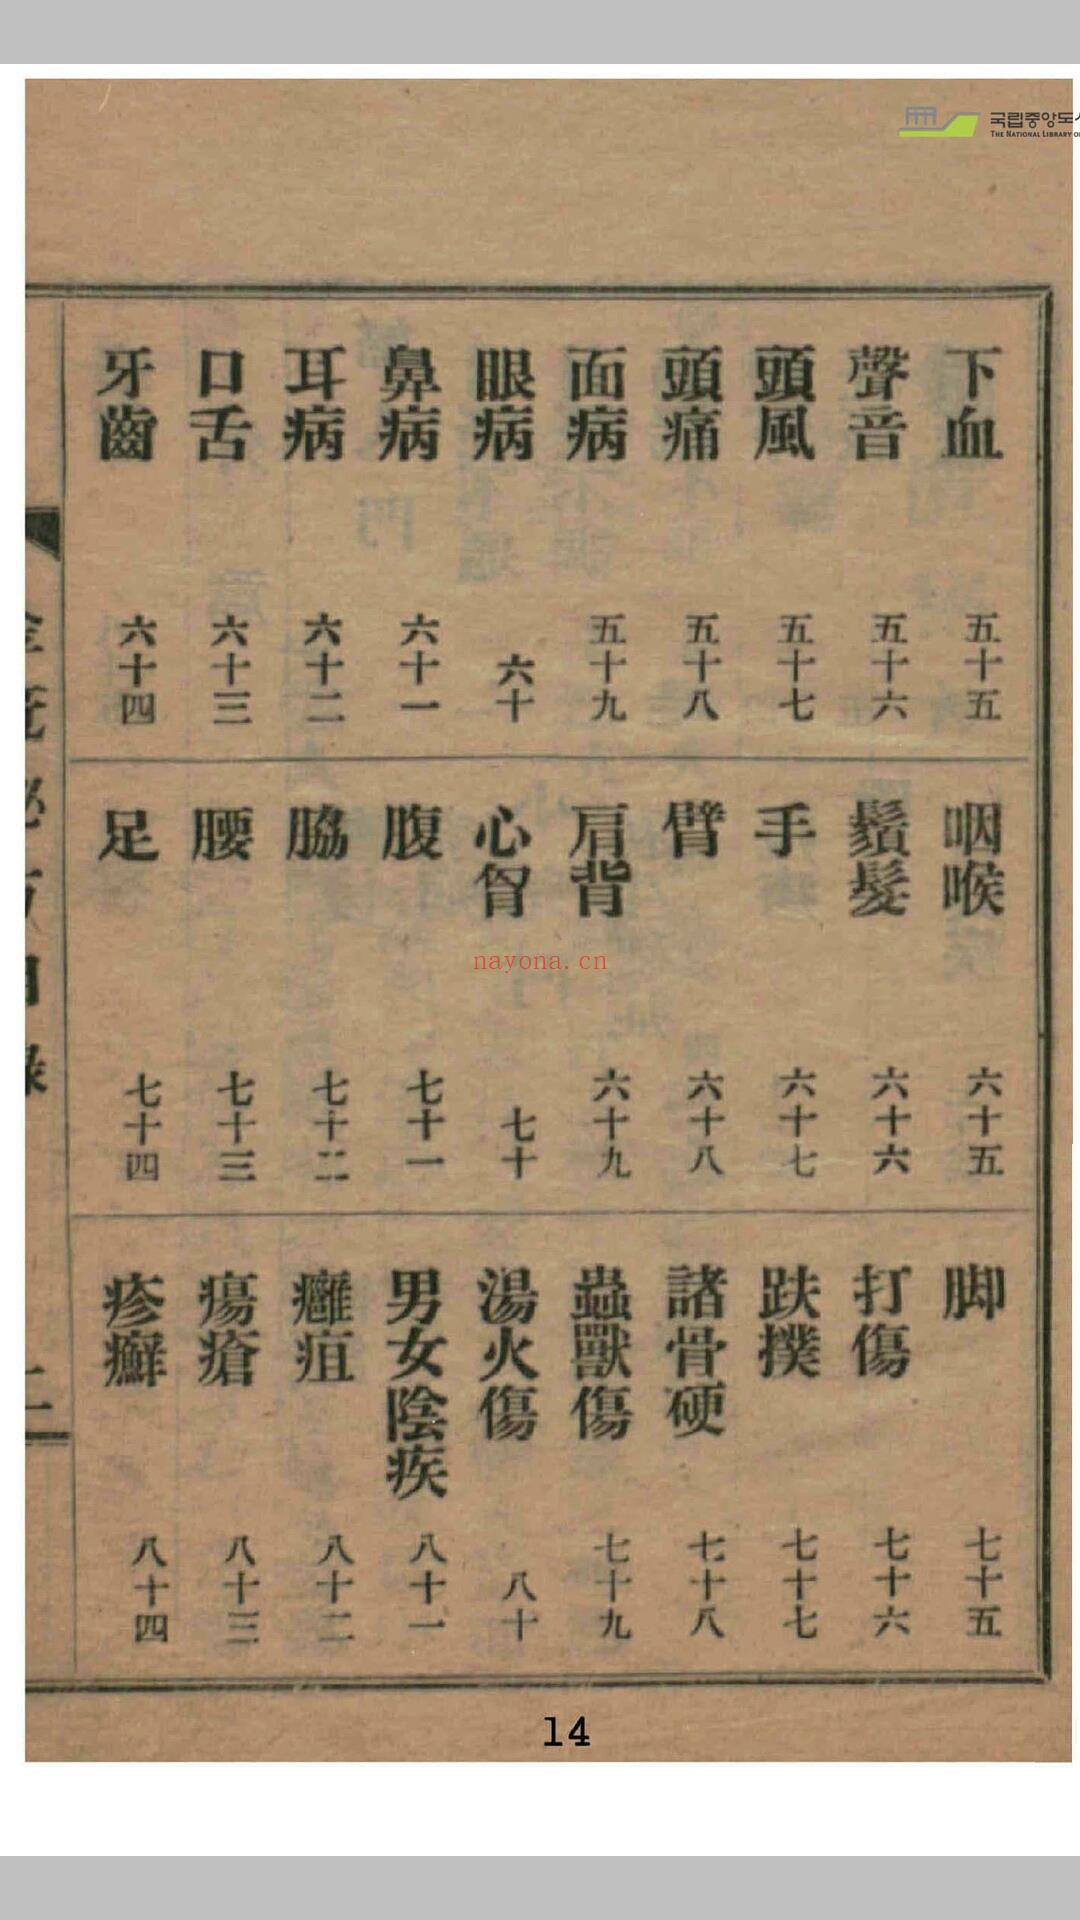 국립중앙도서
THE NATIONAL LIBRARY O
下血 五十五
聲音 五十六
頭風 五十七
頭痛 五十八
面病 五十九
眼病 六十
鼻病 六十一
耳病 六十二
口舌 六十三
牙齒 六十四
咽喉 六十五
鬚髮 六十六
手 六十七
臂 六十八
肩背 六十九
心胷 七十
腹 七十一
脇 七十二
腰 七十三
足 七十四
脚 七十五
打傷 七十六
趺撲 七十七
諸骨硬 七十八
蟲獸傷 七十九
湯火傷 八十
男女陰疾 八十一
癰疽 八十二
瘍瘡 八十三
疹癬 八十四
nayona.cn
14